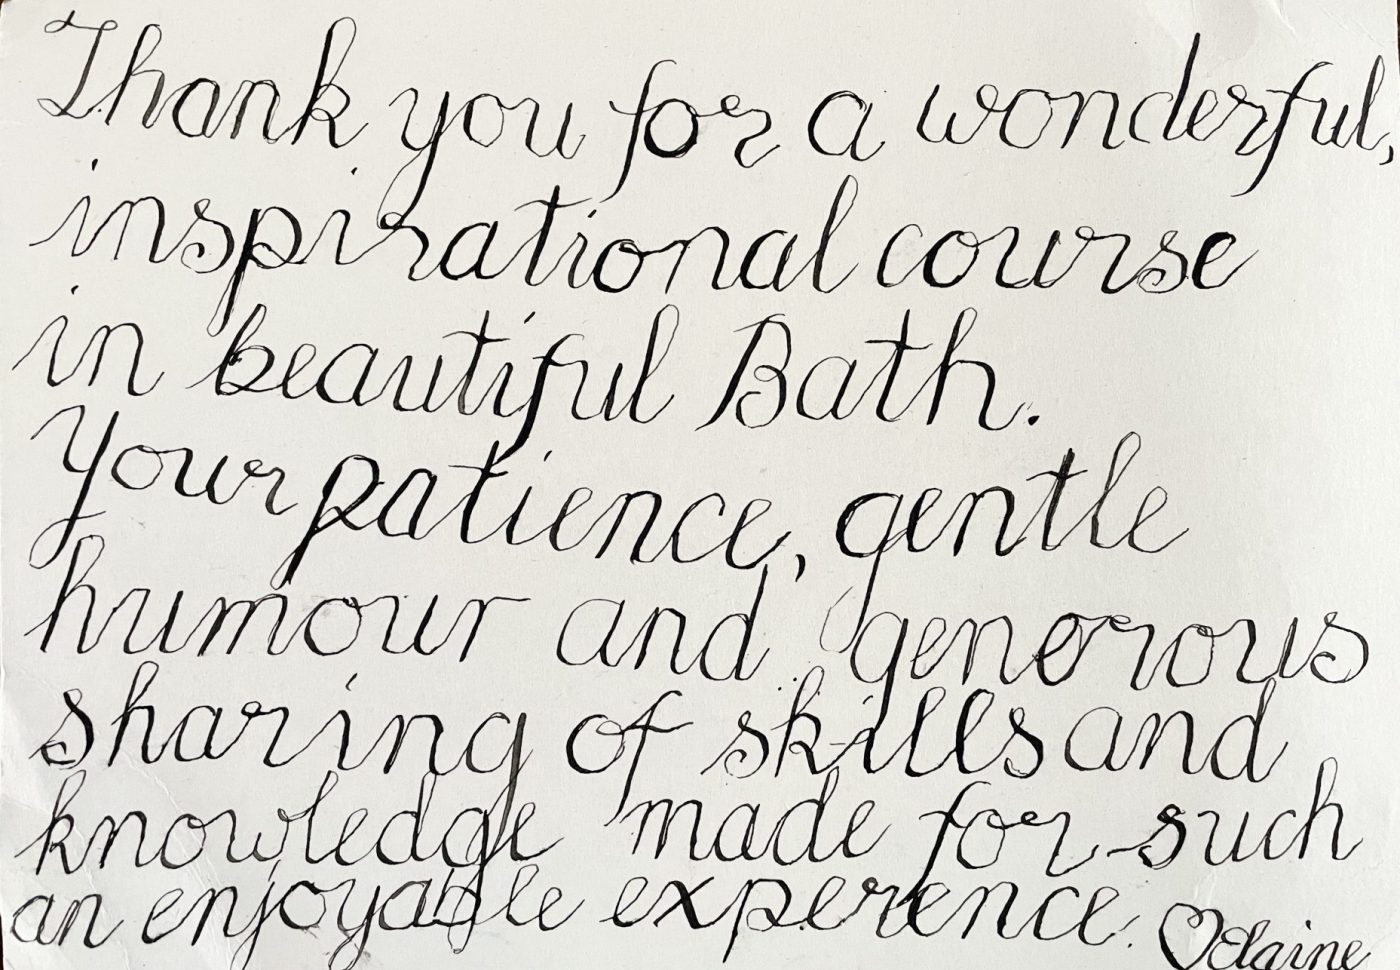 Thank you for a wonderful,
inspirational course
in beautiful Bath.
Your patience, gentle
humour and generous
sharing of skills and
knowledge made for such
an enjoyable experence.
♡Elaine